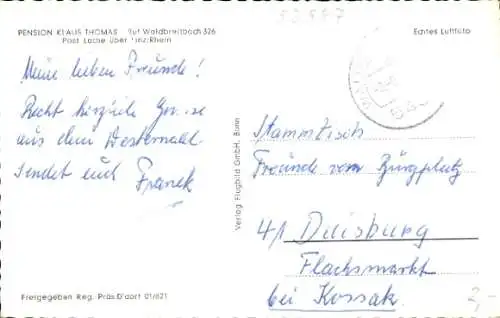 PENSION KLAUS THOMAS Ruf Waldbreitbach 326
Post Lache über Linz/Rhein
Echtes Luftfoto
Meine lieben Freunde!
Recht herzliche Grüsse
aus dem Westerwald
sendet euch
Franek
Verlag Flugbild GmbH, Bonn
Stammtisch
Freunde vom Burgplatz
41 Duisburg
Flachsmarkt
bei Kossak
2,-
Freigegeben Reg. Präs. D'dorf 01/621